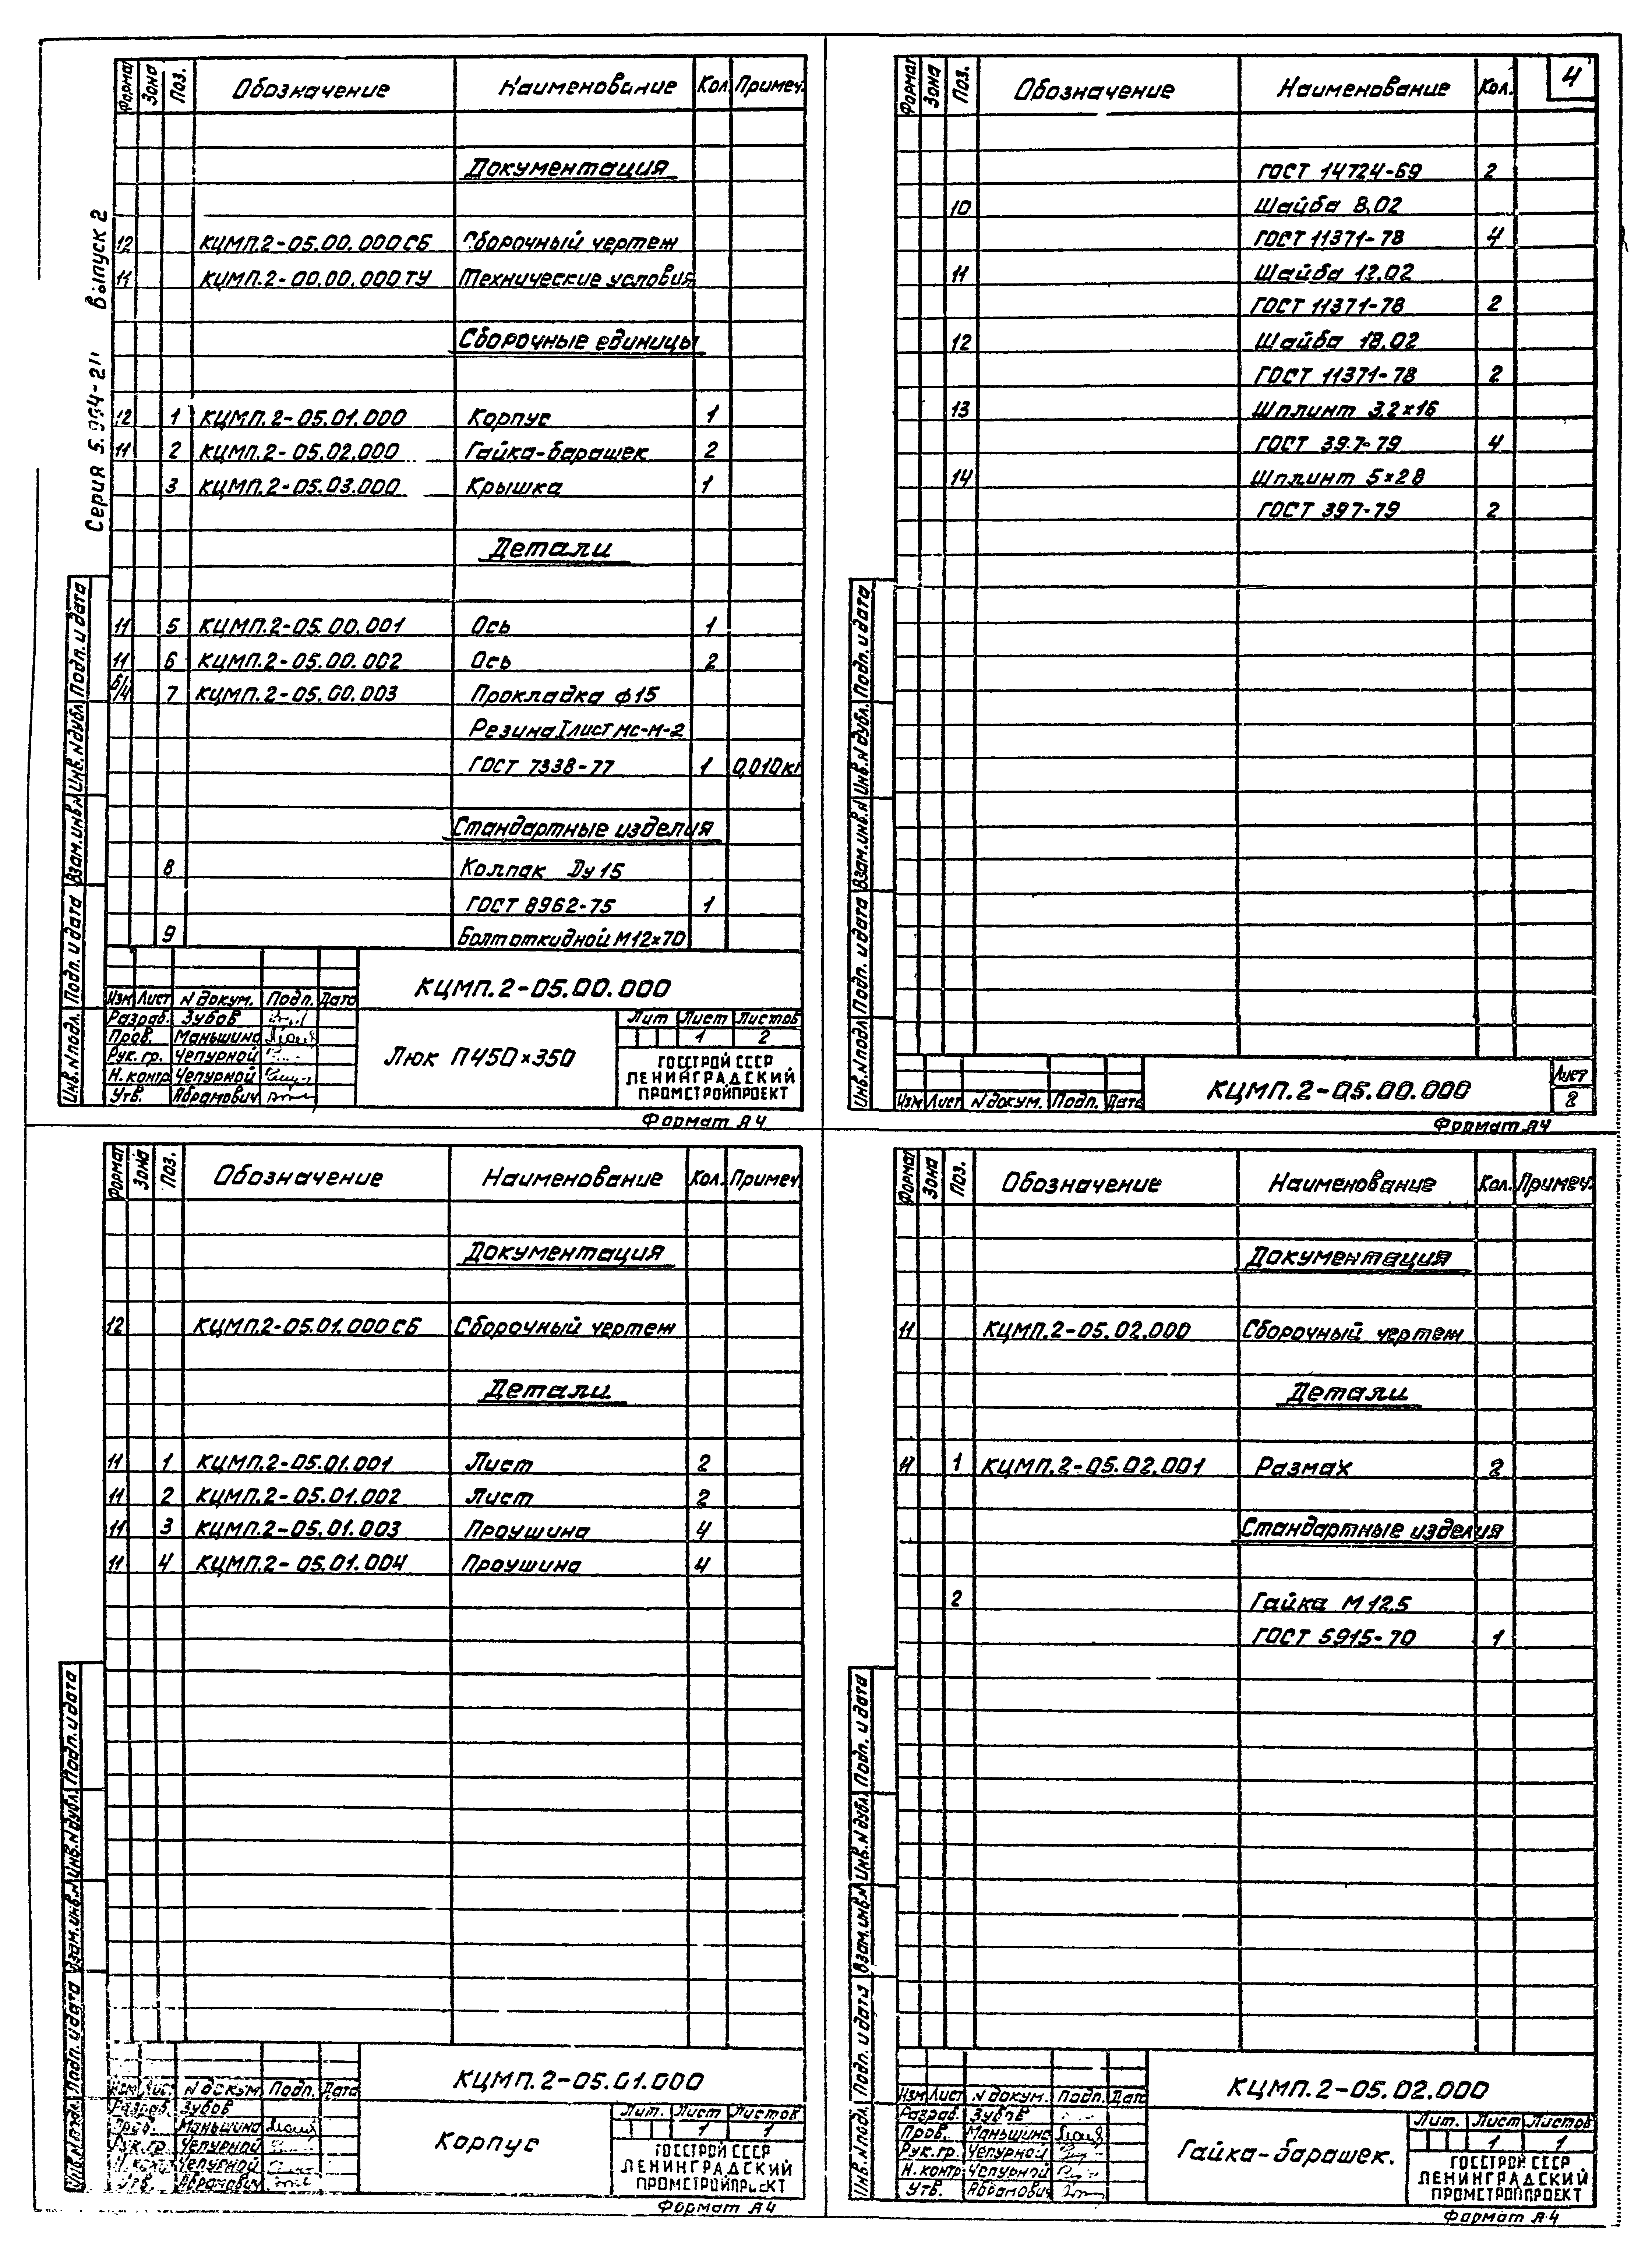 Серия 5.904-21 Выпуск 2
Формат Зона Поз. Обозначение Наименование Кол Примеч.
Документация
12 КЦМП.2-05.00.000СБ Сборочный чертеж
11 КЦМП.2-00.00.000ТУ Технические условия
Сборочные единицы
12 1 КЦМП.2-05.01.000 Корпус 1
11 2 КЦМП.2-05.02.000 Гайка-барашек 2
3 КЦМП.2-05.03.000 Крышка 1
Детали
11 5 КЦМП.2-05.00.001 Ось 1
11 6 КЦМП.2-05.00.002 Ось 2
Б/4 7 КЦМП.2-05.00.003 Прокладка ф15
Резина I лист мс-м-2
ГОСТ 7338-77 1 0,010кг
Стандартные изделия
8 Колпак Dу 15
ГОСТ 8962-75 1
9 Болт откидной М12×70
КЦМП.2-05.00.000
Изм Лист N докум. Подп. Дата
Разраб. Зубов
Пров. Маньшина
Рук. гр. Чепурной
Н. контр Чепурной
Утв. Абрамович
Люк П450×350
Лит Лист Листов
1 2
ГОССТРОЙ СССР
ЛЕНИНГРАДСКИЙ
ПРОМСТРОЙПРОЕКТ
Инв. N подл. Подп. и дата Взам. инв. N Инв. N дубл. Подп. и дата
Формат А4
4
Формат Зона Поз. Обозначение Наименование Кол.
ГОСТ 14724-69 2
10 Шайба 8.02
ГОСТ 11371-78 4
11 Шайба 12.02
ГОСТ 11371-78 2
12 Шайба 18.02
ГОСТ 11371-78 2
13 Шплинт 3,2×16
ГОСТ 397-79 4
14 Шплинт 5×28
ГОСТ 397-79 2
Изм Лист N докум. Подп. Дата
КЦМП.2-05.00.000
Лист
2
Инв. N подл Подп. и дата Взам. инв. N Инв. N дубл. Подп. и дата
Формат А4
Формат Зона Поз. Обозначение Наименование Кол. Примеч.
Документация
12 КЦМП.2-05.01.000СБ Сборочный чертеж
Детали
11 1 КЦМП.2-05.01.001 Лист 2
11 2 КЦМП.2-05.01.002 Лист 2
11 3 КЦМП.2-05.01.003 Проушина 4
11 4 КЦМП.2-05.01.004 Проушина 4
КЦМП.2-05.01.000
Изм Лист N докум Подп. Дата
Разраб. Зубов
Пров. Маньшина
Рук. гр. Чепурной
Н. контр Чепурной
Утв. Абрамович
Корпус
Лит. Лист Листов
1 1
ГОССТРОЙ СССР
ЛЕНИНГРАДСКИЙ
ПРОМСТРОЙПРОЕКТ
Инв. N подл. Подп. и дата Взам. инв. N Инв. N дубл. Подп. и дата
Формат А4
Формат Зона Поз. Обозначение Наименование Кол. Примеч.
Документация
11 КЦМП.2-05.02.000 Сборочный чертеж
Детали
11 1 КЦМП.2-05.02.001 Размах 2
Стандартные изделия
2 Гайка М12.5
ГОСТ 5915-70 1
КЦМП.2-05.02.000
Изм Лист N докум. Подп. Дата
Разраб. Зубов
Пров. Маньшина
Рук. гр. Чепурной
Н. контр Чепурной
Утв. Абрамович
Гайка-барашек.
Лит. Лист Листов
1 1
ГОССТРОЙ СССР
ЛЕНИНГРАДСКИЙ
ПРОМСТРОЙПРОЕКТ
Инв. N подл. Подп. и дата Взам. инв. N Инв. N дубл. Подп. и дата
Формат А4